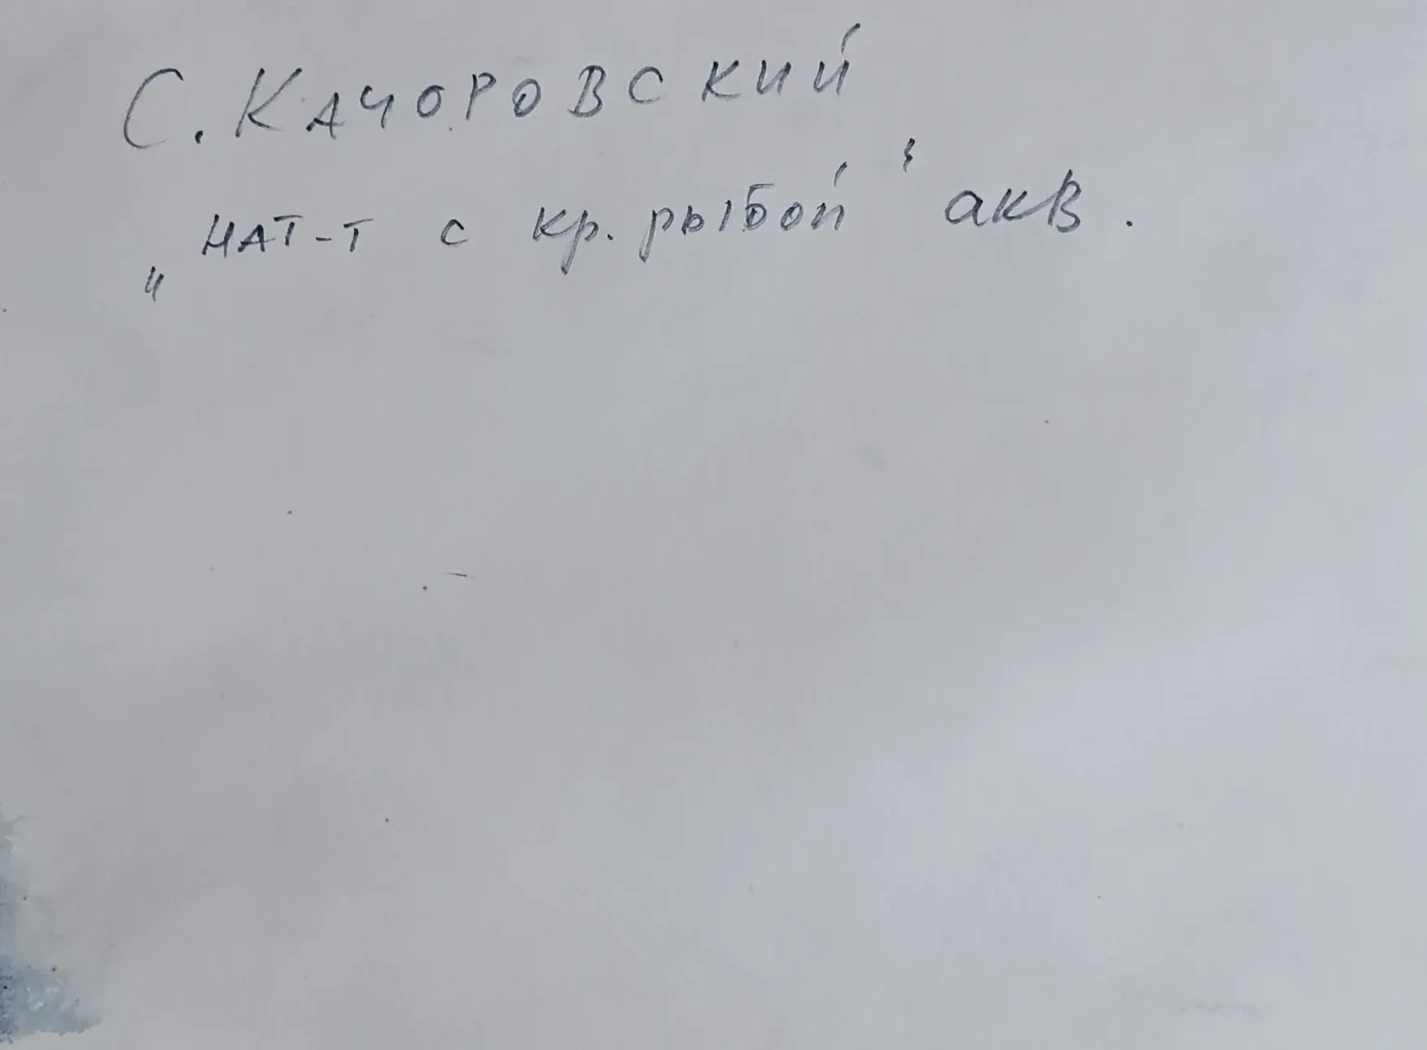 С. Качоровский
„нат-т с кр. рыбой“ акв.